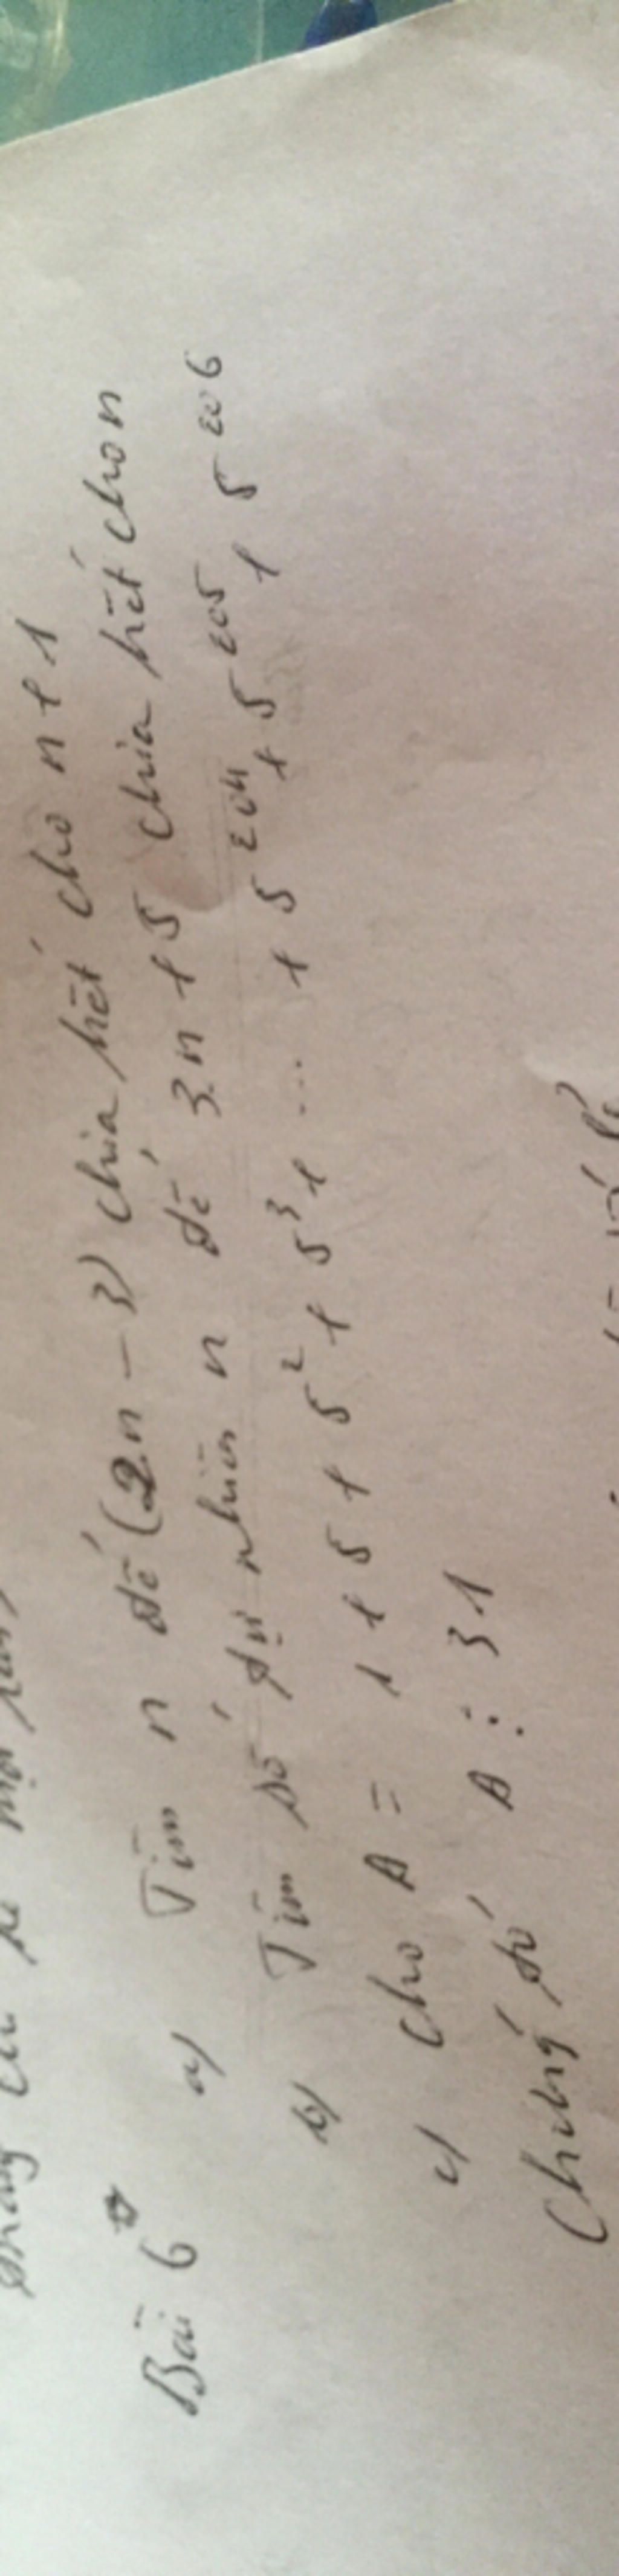 Bài 6*
a) Tìm n để (2.n - 3) chia hết cho n + 1
b) Tìm số tự nhiên n để 3.n + 5 chia hết cho n
c) Cho A = 1 + 5 + 5² + 5³ + ... + 5²⁰⁴ + 5²⁰⁵ + 5²⁰⁶
Chứng tỏ A ⋮ 31